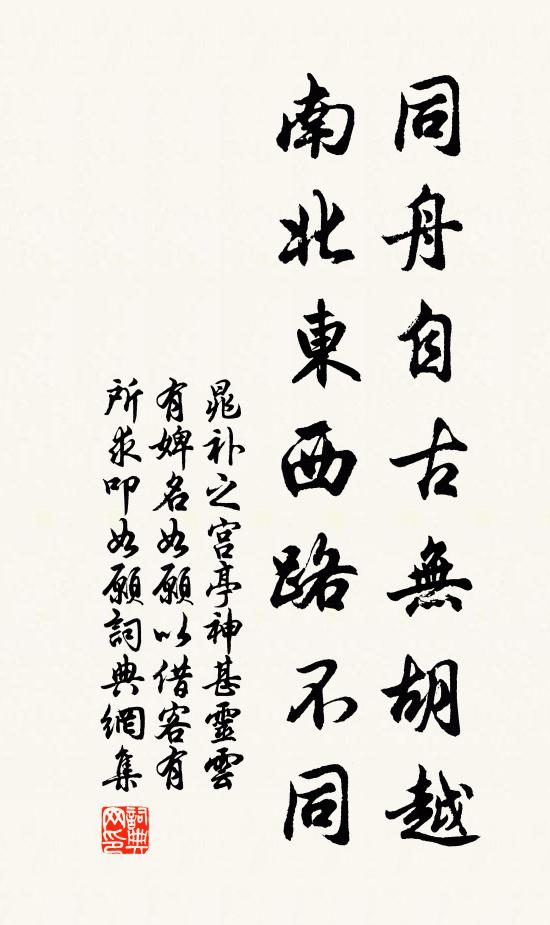 同舟自古無胡越
南北東西路不同
晁补之宫亭神甚靈雲
有婢名如願以借客有
所求叩如願詞典網集
詞典网印